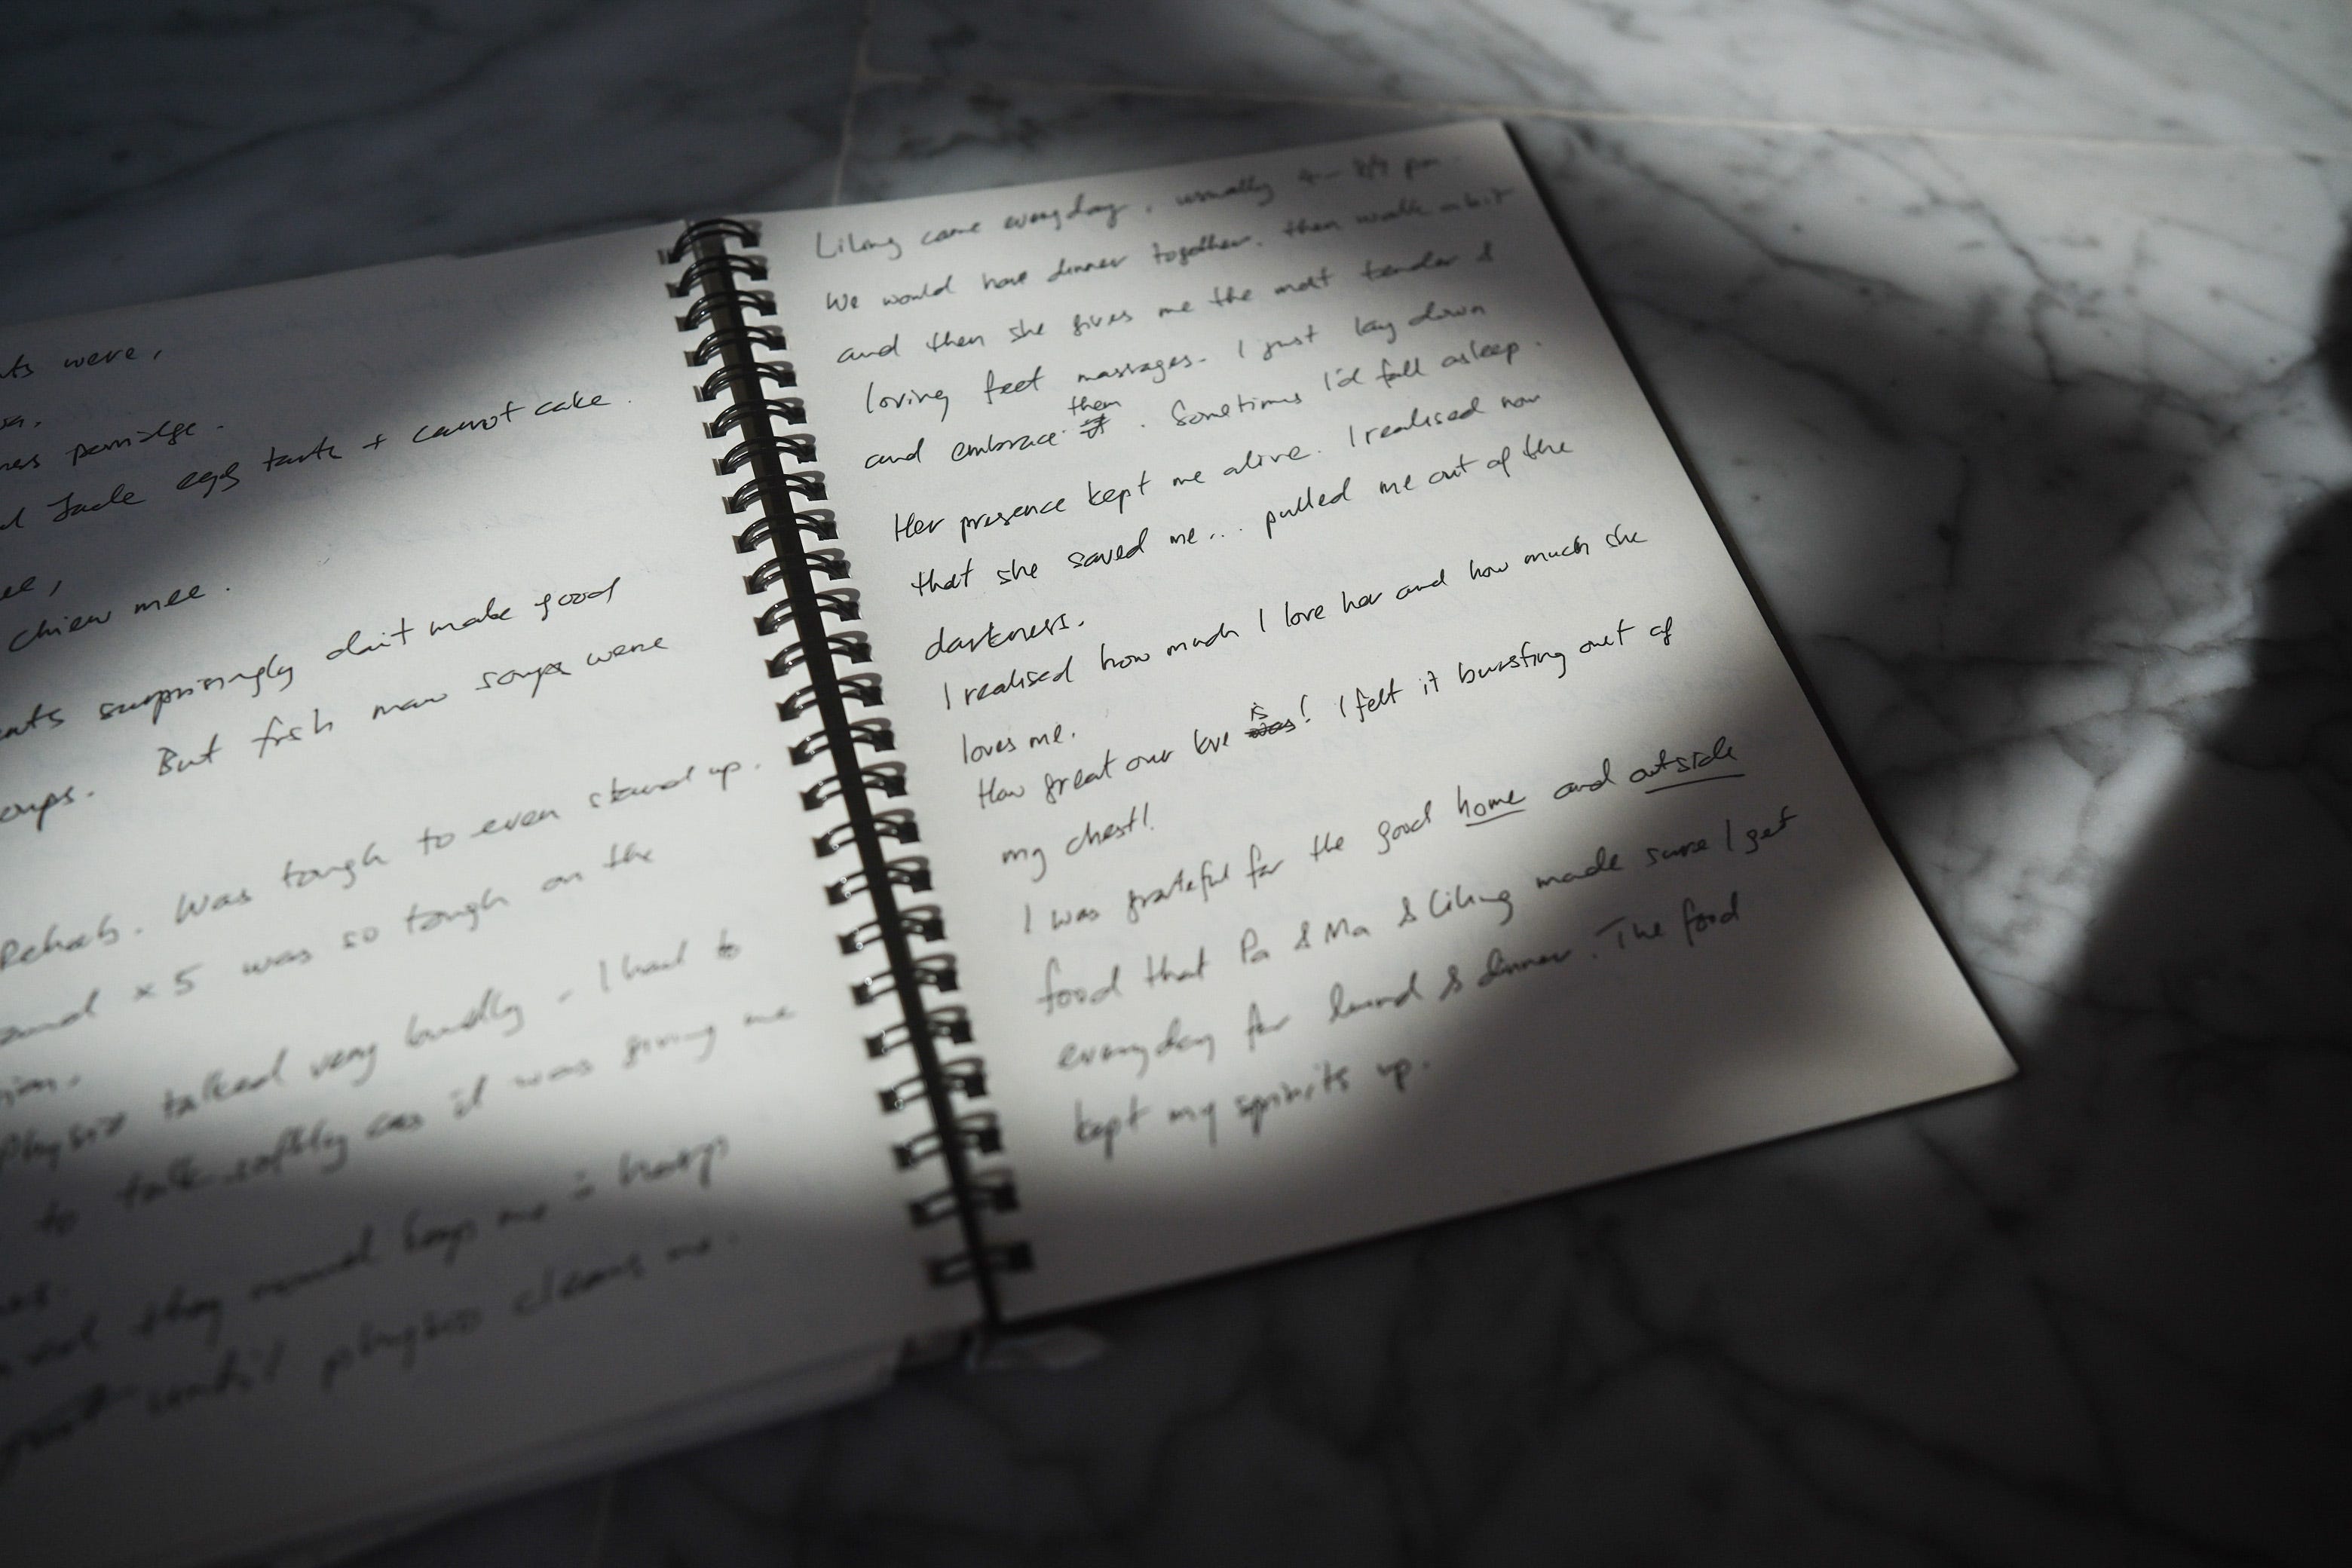 ts were,
porridge.
egg tarts + carrot cake.
mee.
surprisingly didn't make good
But fish maw soups were
Rehab. Was tough to even stand up.
x 5 was so tough on the
Physio talked very loudly. I had to
to talk softly as it was giving me
they
until physio clears me.
Liling came everyday, usually
We would have dinner together, then walk a bit
and then she gives me the most tender &
loving feet massages. I just lay down
and embrace them. Sometimes I'd fall asleep.
Her presence kept me alive. I realised now
that she saved me... pulled me out of the
darkness.
I realised how much I love her and how much she
loves me.
How great our love is! I felt it bursting out of
my chest!
I was grateful for the good home and outside
food that Pa & Ma & Liling made sure I get
everyday for & dinner. The food
kept my spirits up.